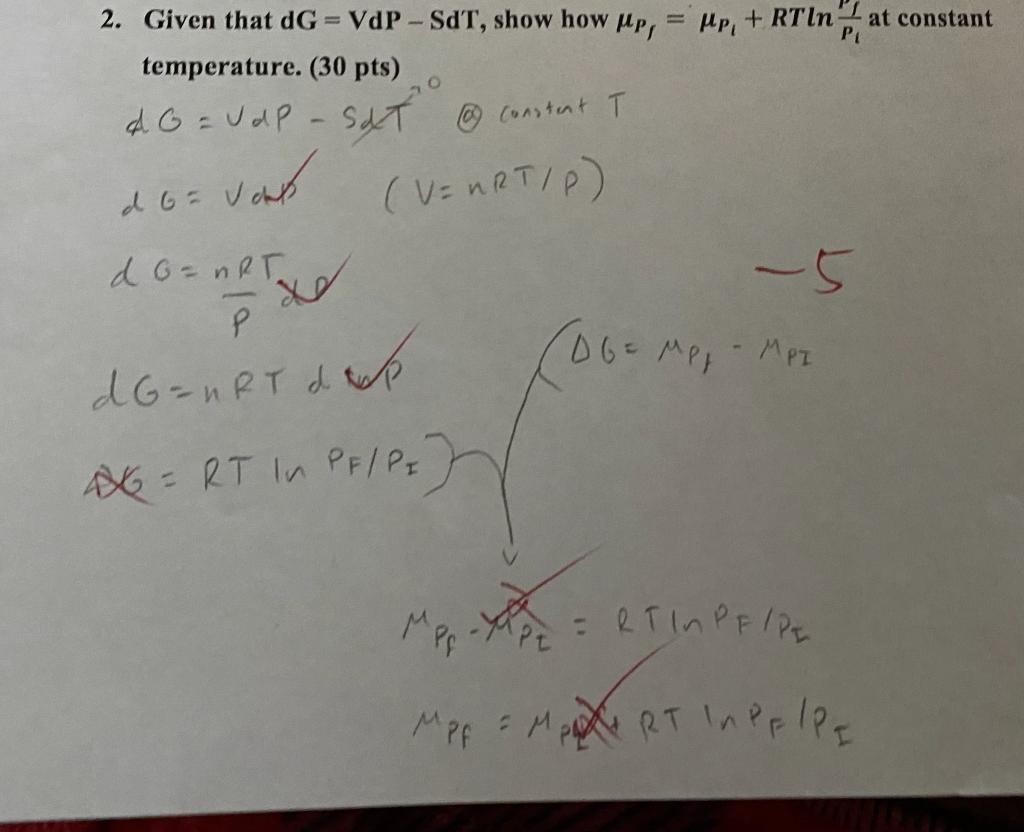 2. Given that dG = VdP – SdT, show how μP_f = μP_i + RTln P_f/P_i at constant
temperature. (30 pts)
dG = VdP - SdT → 0 @ constant T
dG = VdP (V = nRT/P)
dG = nRT/P dP
-5
dG = nRT d lnP
(ΔG = μP_f - μP_I
ΔG = RT ln P_F/P_I }
μP_f - μP_I = RT ln P_F/P_I
μP_f = μP_I + RT ln P_F/P_I